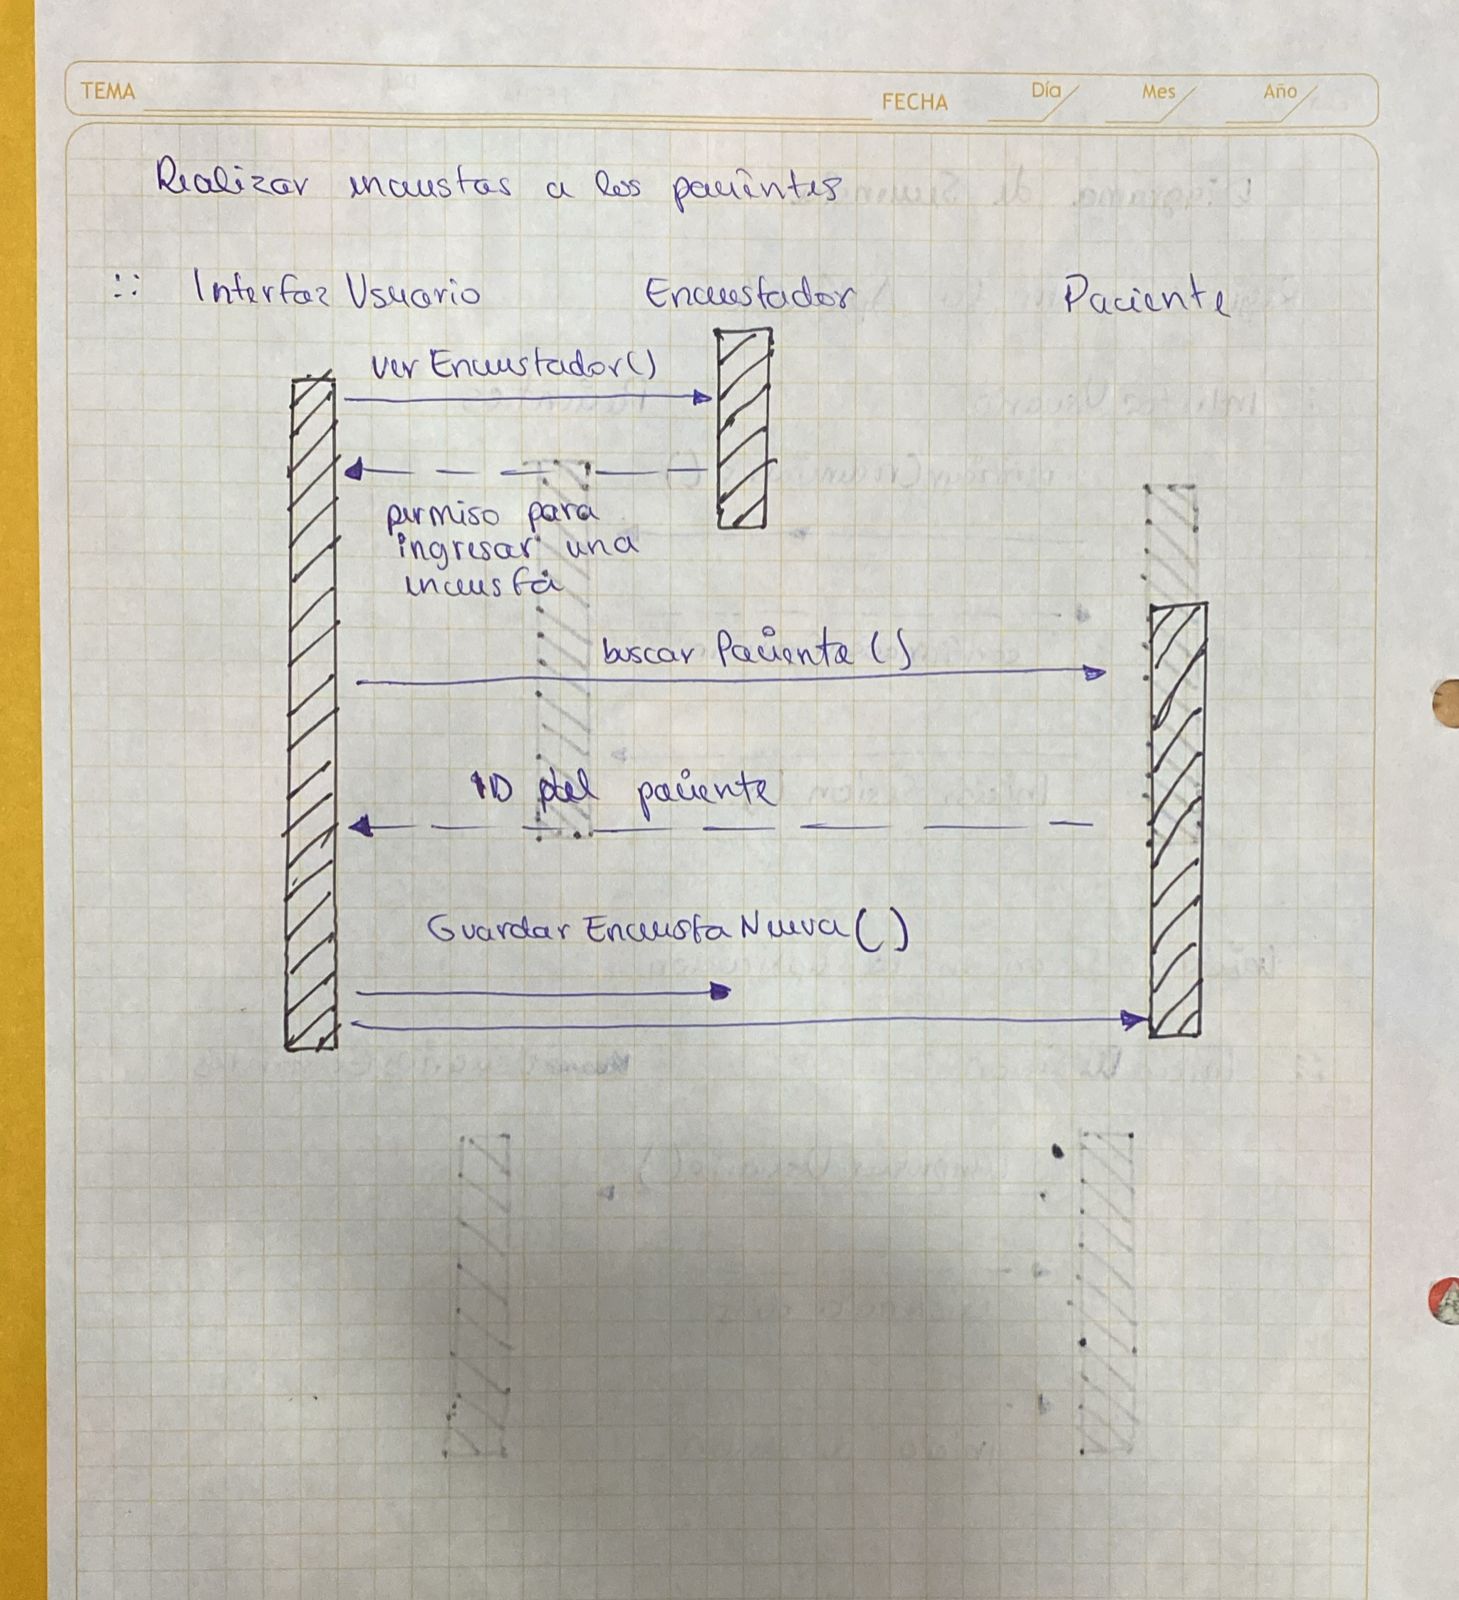 TEMA
FECHA Día Mes Año
Realizar encuestas a los pacientes
:: Interfaz Usuario Encuestador Paciente
ver Encuestador()
permiso para
ingresar una
encuesta
buscar Paciente ()
ID del paciente
Guardar Encuesta Nueva ( )